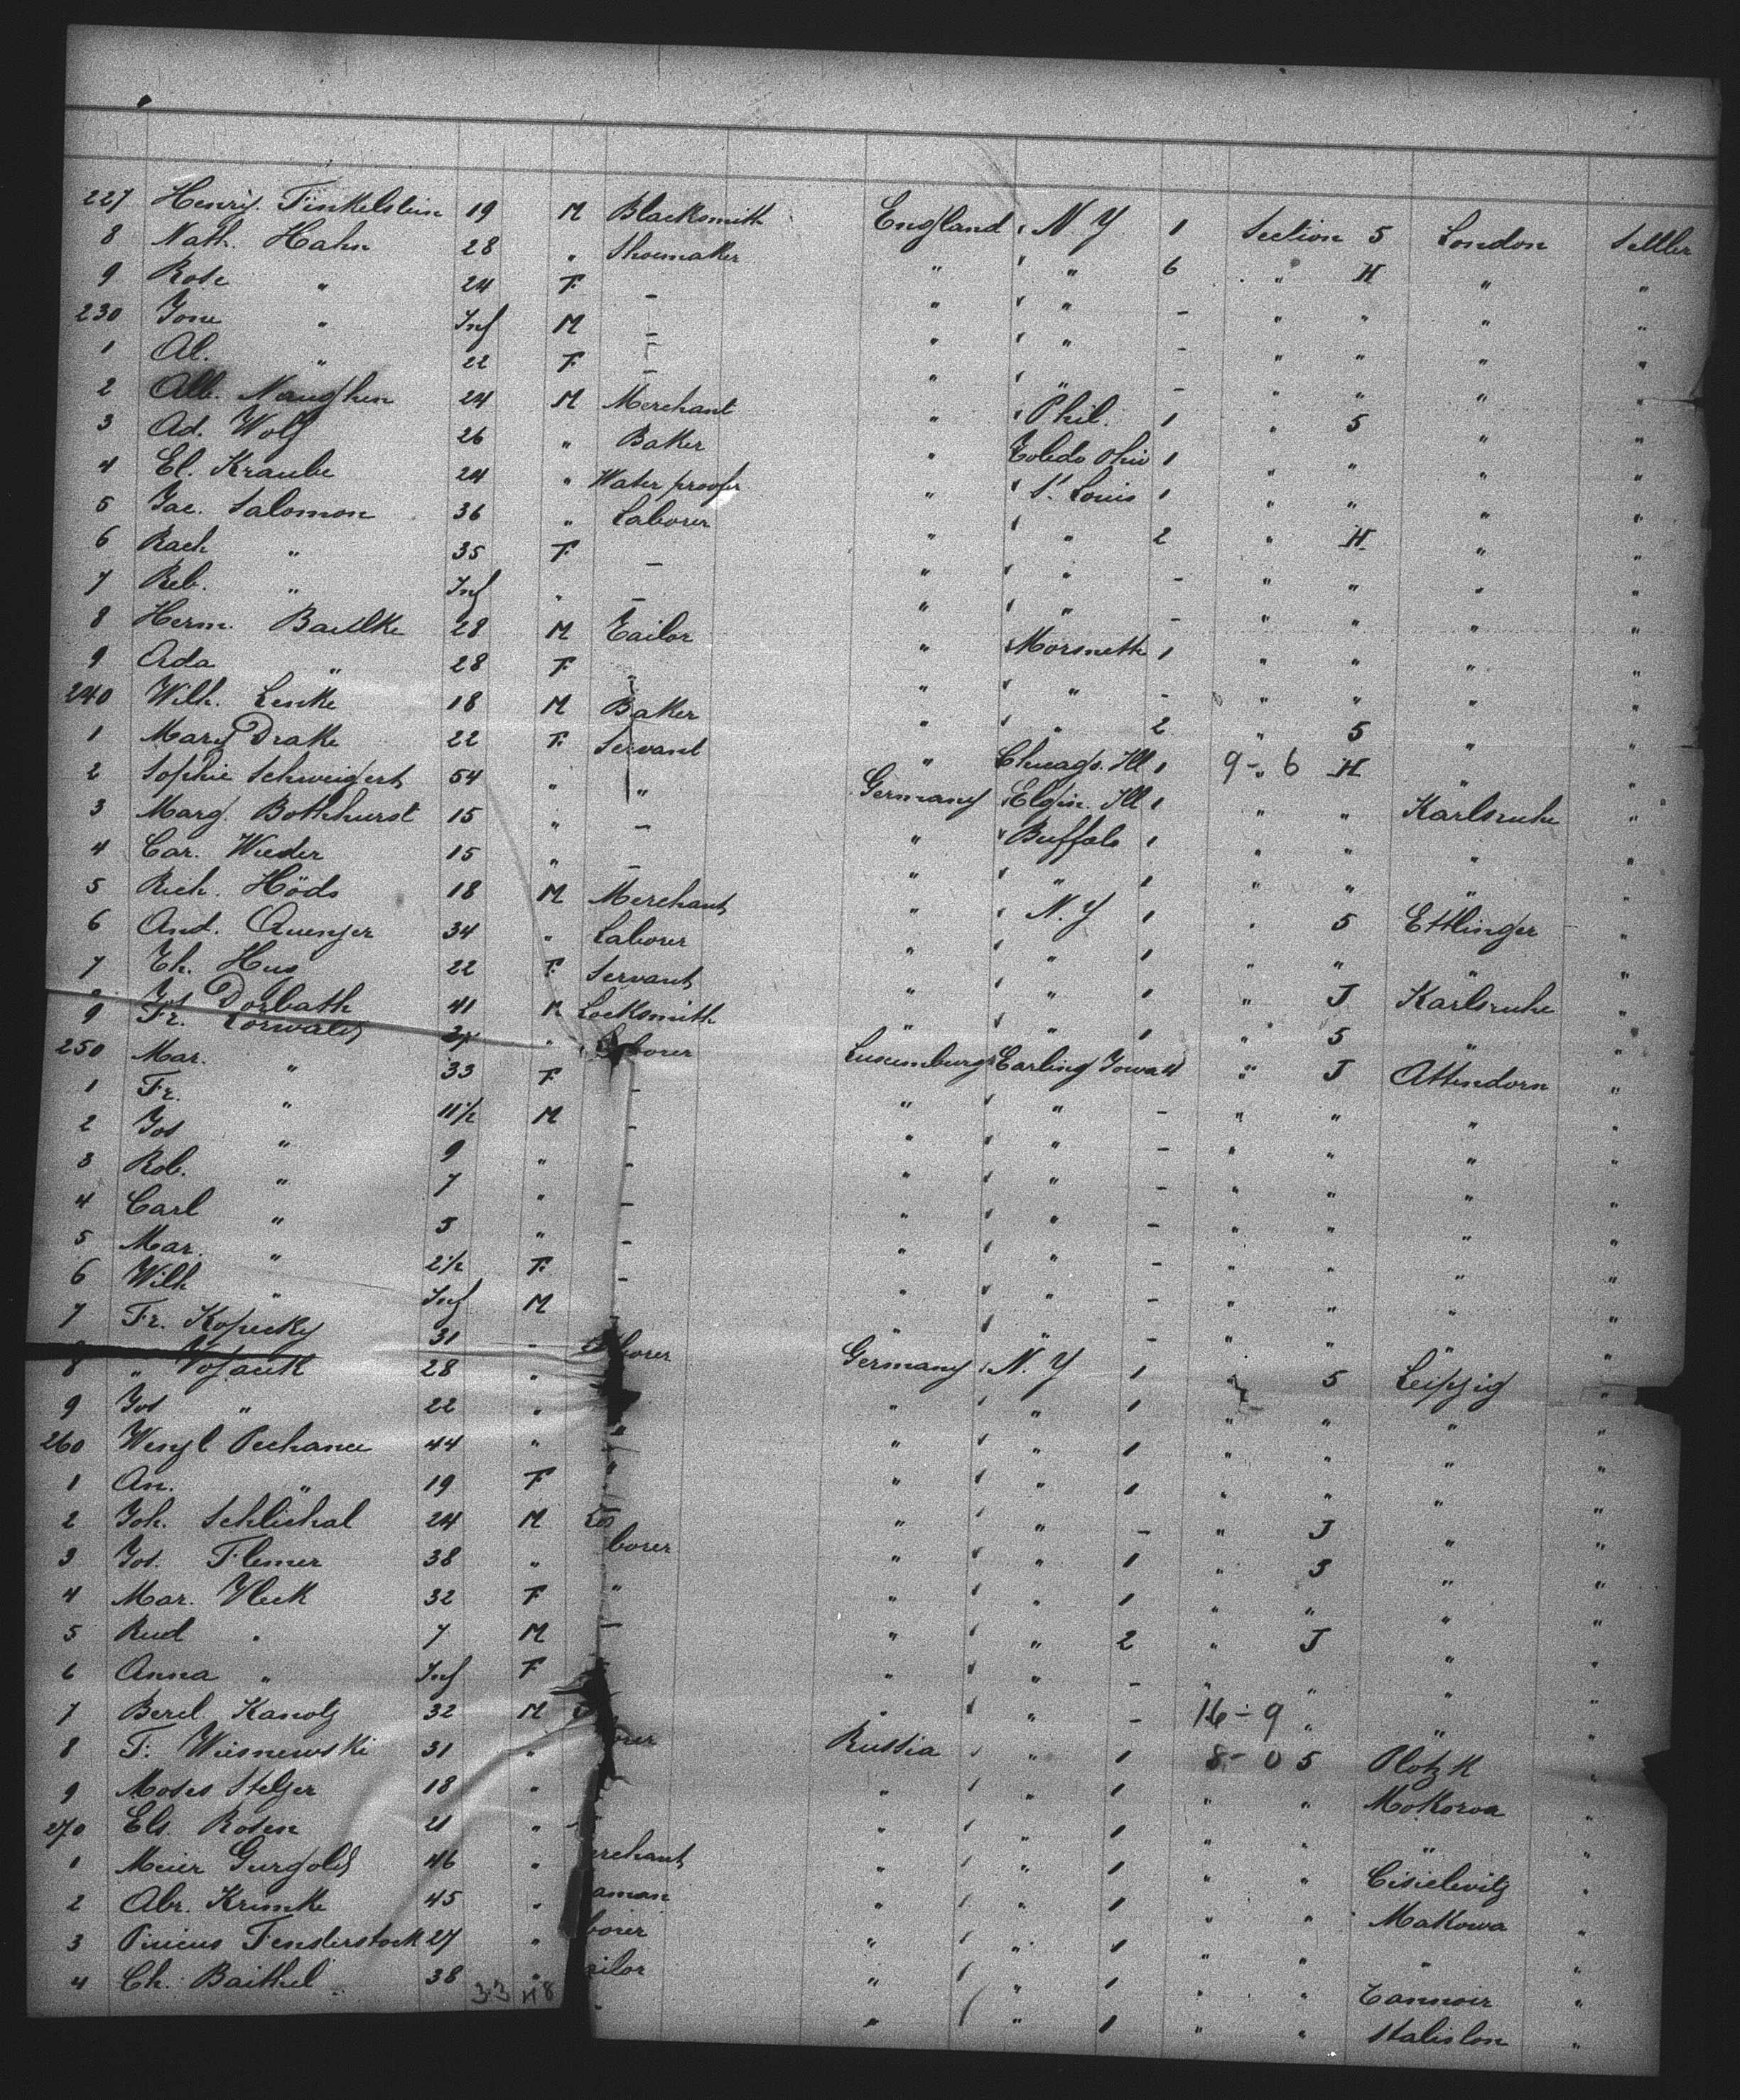 227 Henry. Finkelstein 19 M Blacksmith England N. Y. 1 Section 5 London Settler
8 Nath. Hahn 28 " Shoemaker " " 6 " H " "
9 Rose " 24 F — " " — " " " "
230 " Inf M — " " — " " " "
1 Al. " 22 F — " " — " " " "
2 Alb. 24 M Merchant " Phil. 1 " 5 " "
3 Ad. Wolf 26 " Baker " Toledo Ohio 1 " " " "
4 El. Kraube 24 " Water proofer " St. Louis 1 " " " "
5 Jac. Salomon 36 " Laborer " " 2 " H " "
6 Rach " 35 F — " " — " " " "
7 Reb. " Inf " — " " — " " " "
8 Herm. 28 M Tailor " 1 " " " "
9 Ada " 28 F " " — " " " "
240 Wilh. Lenke 18 M Baker " " 2 " 5 " "
1 Mary Drake 22 F. Servant " Chicago. Ill 1 9 - 6 H " "
2 Sophie Schweigert 54 " " Germany Elgin. Ill 1 " " Karlsruhe "
3 Marg. Bothhurst 15 " — " Buffalo 1 " " " "
4 Car. Wieder 15 " — " " 1 " " " "
5 Rich. Höds 18 M Merchant " N. Y 1 " 5 Ettlinger "
6 And. 34 " Laborer " " 1 " " " "
7 Th. Hug 22 F Servant " " 1 " J Karlsruhe "
Jos Dorbath 41 M Locksmith " " 1 " 5 " "
9 Fr. " Laborer Luxemburg Earling Iowa " J Attendorn "
250 Mar. " 33 F — " " — " " " "
1 Fr. " 11 1/2 M — " " — " " " "
2 Jos " 9 " — " " — " " " "
3 Rob. " 7 " — " " — " " " "
4 Carl " 5 " — " " — " " " "
5 Mar. " 2 1/2 F. — " " — " " " "
6 Wilh " Inf M " " — " " " "
7 Fr. Kopecky 31 " Germany N. Y 1 " 5 Leipzig "
8 " 28 " " " 1 " " " "
9 Jos " 22 " " " " 1 " " " "
260 Wenzl Pechanec 44 " " " " 1 " " " "
1 An. " 19 F " " — " J " "
2 Joh. Schlichal 24 M borer " " 1 " 5 " "
3 Jos. Flemer 38 " " " " 1 " " " "
4 Mar. Vlcek 32 F — " " 2 " J " "
5 Rud " 7 M " " — " " " "
6 Anna " Inf F " " — 16 - 9 " " "
7 Berl Kanotz 32 M Russia " 1 8 - 0 5 Plotzk "
8 F. Wiesnewski 31 " " " 1 " " Mokowa "
9 Moses Stelzer 18 " " " 1 " " " "
270 Els. Rosen 21 " rchant " " 1 " " "
1 Meier Gurgold 46 " aman " " 1 " " Makowa "
2 Abr. Krimke 45 " borer " " 1 " " " "
3 Pincus Fenderstock 27 " ailor " " 1 " " "
4 Ch. Baithel 38 " - " " 1 " " "
33 118